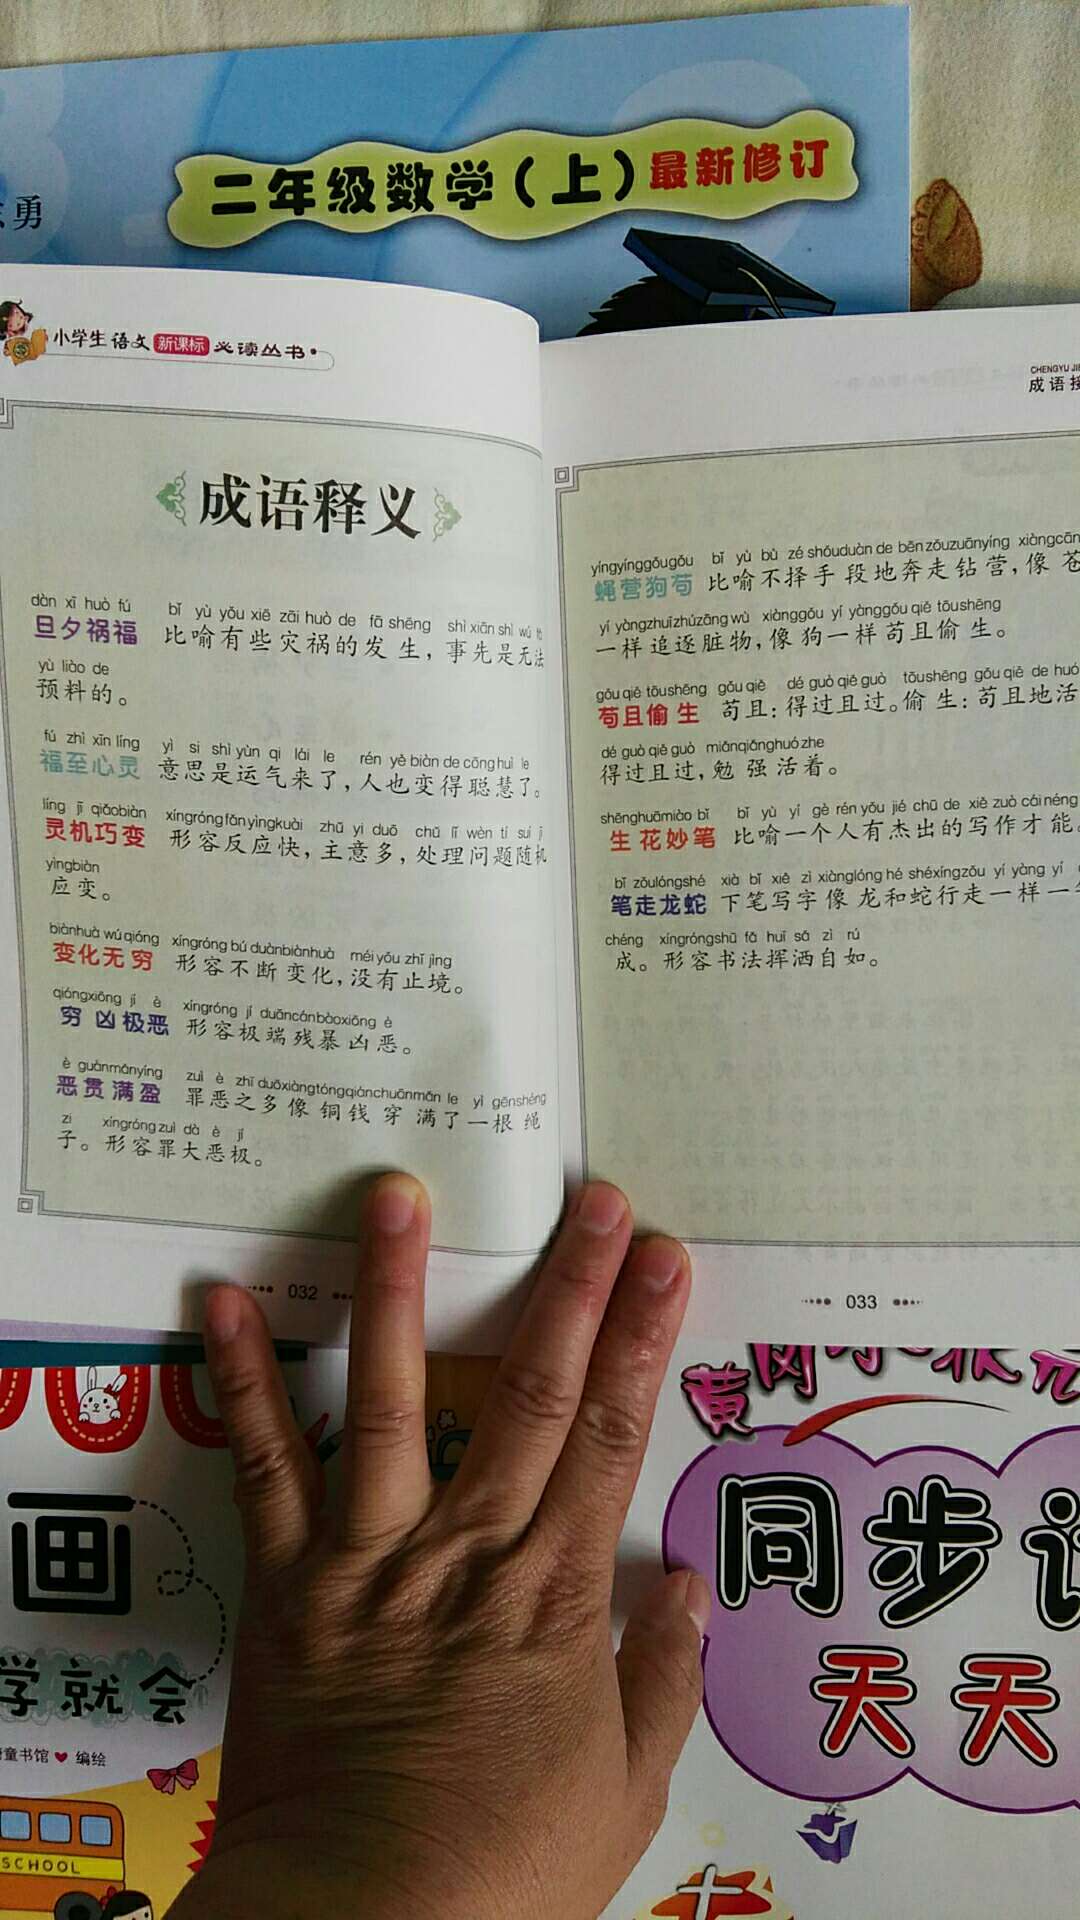 二年级数学(上)最新修订
勇
小学生语文新课标必读丛书
成语释义
dàn xī huò fú bǐ yù yǒu xiē zāi huò de fā shēng shì xiān shì wú
旦夕祸福 比喻有些灾祸的发生,事先是无法
yù liào de
预料的。
fú zhì xīn líng yì si shì yùn qi lái le rén yě biàn de cōng huì le
福至心灵 意思是运气来了,人也变得聪慧了。
líng jī qiǎobiàn xíngróngfǎnyìngkuài zhǔ yi duō chǔ lǐ wèn tí suí jī
灵机巧变 形容反应快,主意多,处理问题随机
yìngbiàn
应变。
biànhuà wú qióng xíngróng bú duànbiànhuà méi yǒu zhǐ jìng
变化无穷 形容不断变化,没有止境。
qióngxiōng jí è xíngróng jí duāncánbàoxiōng è
穷凶极恶 形容极端残暴凶恶。
è guànmǎnyíng zuì è zhī duōxiàngtóngqiánchuānmǎn le yì gēnshéng
恶贯满盈 罪恶之多像铜钱穿满了一根绳
zi xíngróng zuì dà è jí
子。形容罪大恶极。
032
CHENGYU JIE
成语接
yíngyínggǒugǒu bǐ yù bù zé shǒuduàn de bēnzǒuzuānyíng xiàngcāng
蝇营狗苟 比喻不择手段地奔走钻营,像苍
yí yàngzhuīzhúzāngwù xiànggǒu yí yànggǒu qiě tōushēng
一样追逐脏物,像狗一样苟且偷生。
gǒu qiě tōushēng gǒu qiě dé guò qiě guò tōushēng gǒu qiě de huó
苟且偷生 苟且:得过且过。偷生:苟且地活
dé guò qiě guò miǎnqiǎnghuózhe
得过且过,勉强活着。
shēnghuāmiào bǐ bǐ yù yí gè rén yǒu jié chū de xiě zuò cái néng
生花妙笔 比喻一个人有杰出的写作才能。
bǐ zǒulóngshé xià bǐ xiě zì xiànglóng hé shéxíngzǒu yí yàng yí
笔走龙蛇 下笔写字像龙和蛇行走一样一
chéng xíngróngshū fǎ huī sǎ zì rú
成。形容书法挥洒自如。
033
画
学就会
童书馆 编绘
SCHOOL
黄冈小状元
同步
天天